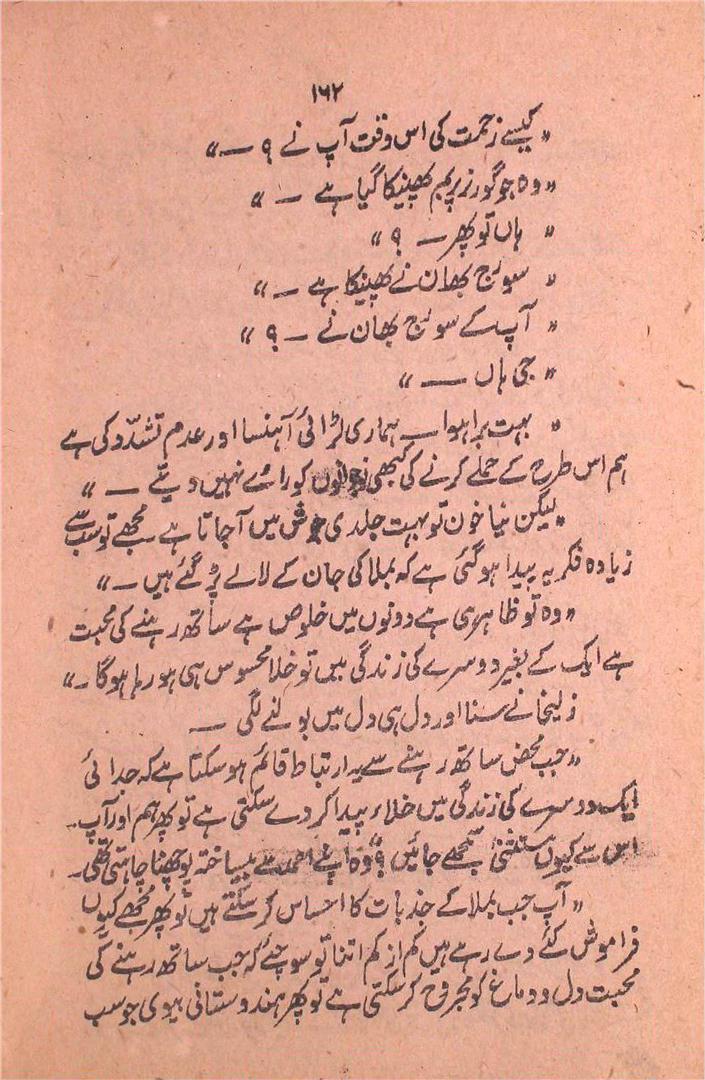 ۱۶۲
"کیسے زحمت کی اس وقت آپ نے ؟ —"
"وہ جو گورنر پر بم پھینکا گیا ہے —"
"ہاں تو پھر — ؟"
"سورج بھان نے پھینکا ہے —"
"آپ کے سورج بھان نے — ؟"
"جی ہاں —"
"بہت برا ہوا — ہماری لڑائی آہنسا اور عدم تشدّد کی ہے
ہم اس طرح کے حملے کرنے کی کبھی نوجوانوں کو رائے نہیں دیتے —"
"لیکن نیا خون تو بہت جلدی جوش میں آجاتا ہے۔ مجھے تو سب سے
زیادہ فکر یہ پیدا ہوگئی ہے کہ بملا کی جان کے لالے پڑ گئے ہیں —"
"وہ تو ظاہر ہی ہے دونوں میں خلوص ہے ساتھ رہنے کی محبت
ہے ایک کے بغیر دوسرے کی زندگی میں تو خلا محسوس ہی ہو رہا ہوگا۔"
زلیخا نے سنا اور دل ہی دل میں بولنے لگی —
"جب محض ساتھ رہنے سے یہ ارتباط قائم ہو سکتا ہے کہ جدائی
ایک دوسرے کی زندگی میں خلاء پیدا کر دے سکتی ہے تو پھر ہم اور آپ
اس سے کیوں مستثنیٰ سمجھے جائیں ؟" وہ اپنے احمد سے بیساختہ پوچھنا چاہتی تھی۔
"آپ جب بملا کے جذبات کا احساس کر سکتے ہیں تو پھر مجھے کیوں
فراموش کئے دے رہے ہیں کم از کم اتنا تو سوچئے کہ جب ساتھ رہنے کی
محبت دل و دماغ کو مجروح کر سکتی ہے تو پھر ہندوستانی بیوی جو سب